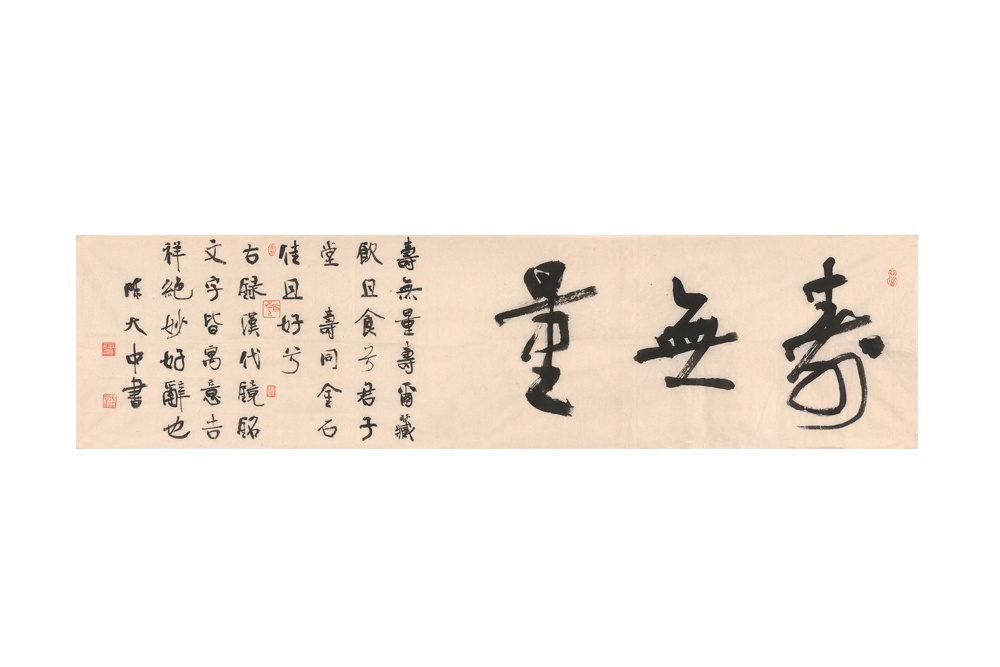 壽無量
壽無量壽富藏
飲且食兮君子
堂 壽同金石
佳且好兮
右録漢代鏡銘
文字皆寓意吉
祥絶妙好辭也
陈大中書